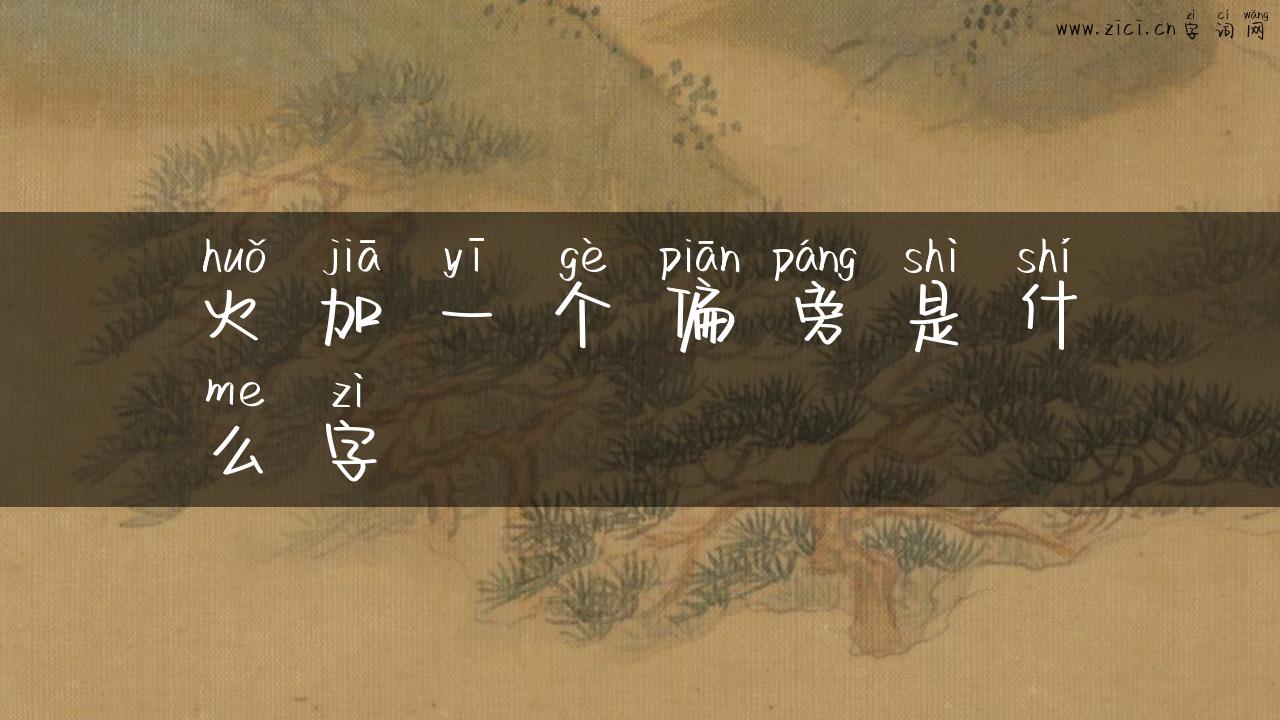 zì cí wǎng
www.zici.cn 字词网
huǒ jiā yī gè piān páng shì shí
火加一个偏旁是什
me zì
么字